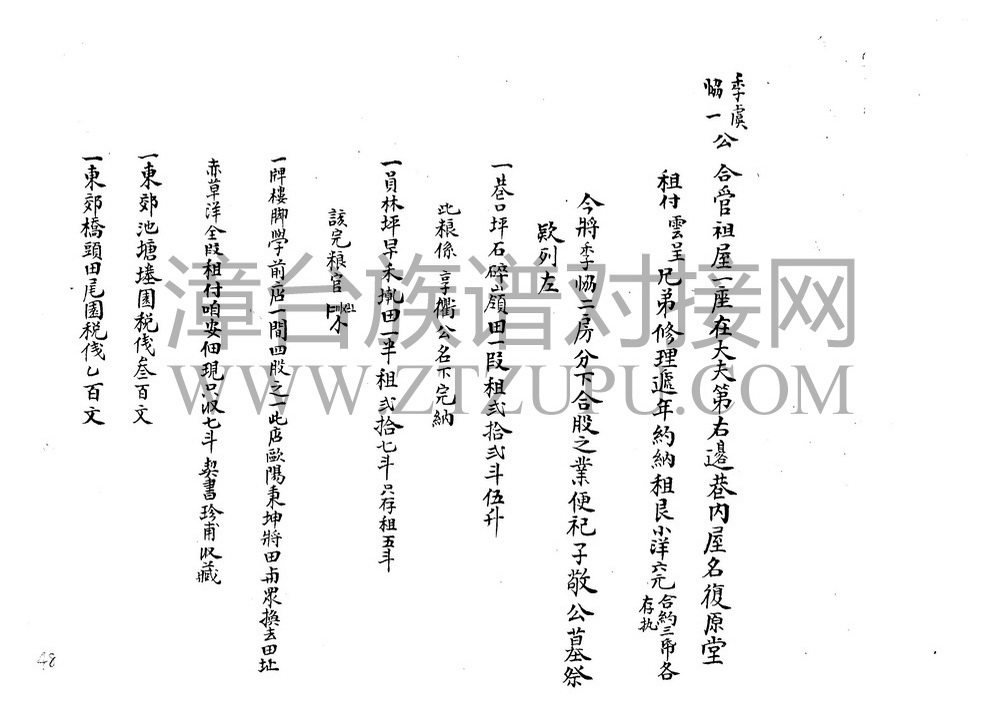 季虞
協一公 合管祖屋一座在大夫第右邊巷内屋名復原堂
租付雲呈兄弟修理遞年約納租艮小洋六元合約三帋各存执
今將季協二房分下合股之業便祀子敬公墓祭
欵列左
一巷口坪石碎嶺田一段租弍拾弍斗伍升
此粮係享衢公名下完納
一員林坪早禾墘田一半租弍拾七斗只存租五斗
該完粮官
一牌樓脚學前店一間四股之一此店歐陽秉坤將田與眾換去田址
赤草洋全段租付咱安佃現只收七斗契書珍甫收藏
一東郊池塘墘園税伐叁百文
一東郊橋頭田尾園税伐乙百文
漳台族谱对接网
WWW.ZTZUPU.COM
48